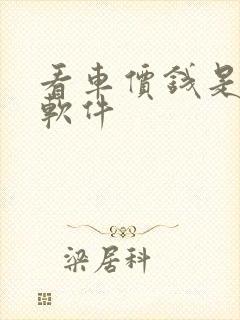 看車價錢是
軟件
梁居科